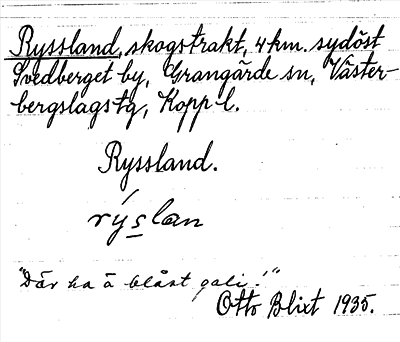 Ryssland, skogstrakt, 4 km. sydöst
Svedberget by, Grangärde sn, Väster-
bergslags tg, Kopp l.
Ryssland.
rýslan
"Där ha ä blåst gali!"
Otto Blixt 1935.